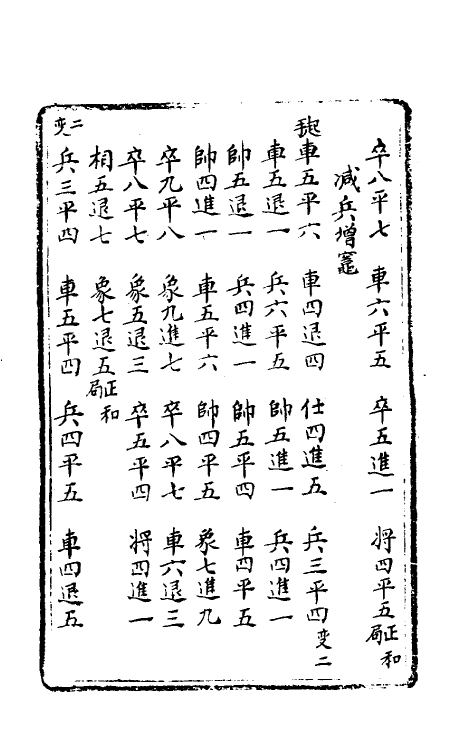 卒八平七　車六平五　卒五進一　將四平五正局和
減兵增竈
車五平六　車四退四　仕四進五　兵三平四变二
車五退一　兵六平五　帥五進一　兵四進一
帥五退一　兵四進一　帥五平四　車四平五
帥四進一　車五平六　帥四平五　象七進九
卒九平八　象九進七　卒八平七　車六退三
卒八平七　象五退三　卒五平四　將四進一
相五退七　象七退五正局和
二变
兵三平四　車五平四　兵四平五　車四退五